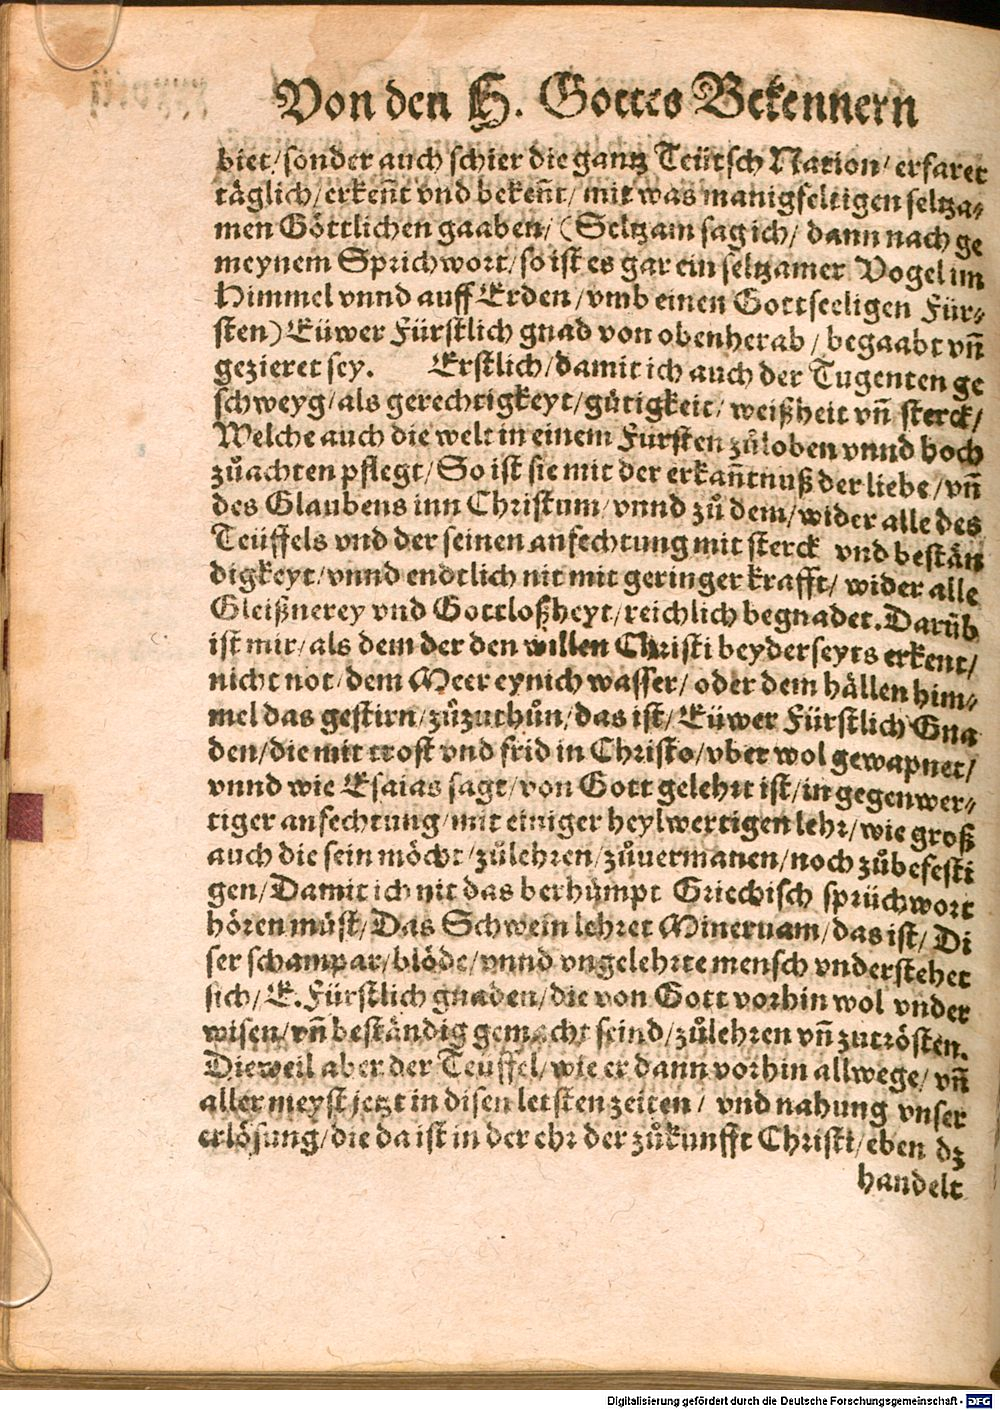 Von den H. Gottes Bekennern
biet/ sonder auch schier die gantz Teütsch Nation/ erfaret
täglich/ erkeñt vnd bekeñt/ mit was manigfeltigen seltza⸗
men Göttlichen gaaben/ (Seltzam sag ich/ dann nach ge
meynem Sprichwort/ so ist es gar ein seltzamer Vogel im
Himmel vnnd auff Erden/ vmb einen Gottseeligen Für⸗
sten) Eüwer Fürstlich gnad von obenherab/ begaabt vñ
gezieret sey. Erstlich/ damit ich auch der Tugenten ge
schweyg/ als gerechtigkeyt/ gůtigkeit/ weißheit vñ sterck/
Welche auch die welt in einem Fürsten zůloben vnnd hoch
zůachten pflegt/ So ist sie mit der erkañtnuß der liebe/ vñ
des Glaubens inn Christum/ vnnd zů dem/ wider alle des
Teüffels vnd der seinen anfechtung mit sterck vnd bestän
digkeyt/ vnnd endtlich nit mit geringer krafft/ wider alle
Gleißnerey vnd Gottloßheyt/ reichlich begnadet. Darüb
ist mir/ als dem der den willen Christi beyderseyts erkent/
nicht not/ dem Meer eynich wasser/ oder dem hällen him⸗
mel das gestirn/ zůzuthůn/ das ist/ Eüwer Fürstlich Gna
den/ die mit trost vnd frid in Christo/ vber wol gewapnet/
vnnd wie Esaias sagt/ von Gott gelehrt ist/ in gegenwer⸗
tiger anfechtung/ mit einiger heylwertigen lehr/ wie groß
auch die sein möcht/ zůlehren/ zůuermanen/ noch zůbefesti
gen/ Damit ich nit das berhümpt Griechisch sprüchwort
hören müst/ Das Schwein lehret Mineruam/ das ist/ Di
ser schampar/ blöde/ vnnd vngelehrte mensch vnderstehet
sich/ E. Fürstlich gnaden/ die von Gott vorhin wol vnder
wisen/ vñ beständig gemacht seind/ zůlehren vñ zutrösten.
Dieweil aber der Teuffel/ wie er dann vorhin allwege/ vñ
aller meyst jetzt in disen letsten zeiten/ vnd nahung vnser
erlösung/ die da ist in der ehr der zůkunfft Christi/ eben dz
handelt
Digitalisierung gefördert durch die Deutsche Forschungsgemeinschaft - DFG